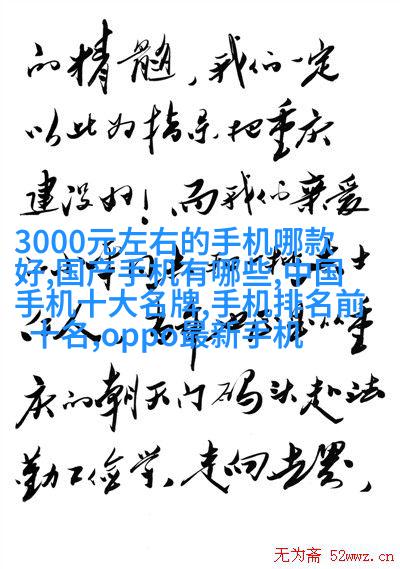 的精髓，我们一定
以此为指导把重庆
建设好！而我们亲爱
3000元左右的手机哪款
好,国产手机有哪些,中国
手机十大名牌,手机排名前
十名,oppo最新手机
庆的朝天门码头赴法
勤工俭学，走向世界，
无为斋 52wwz.cn